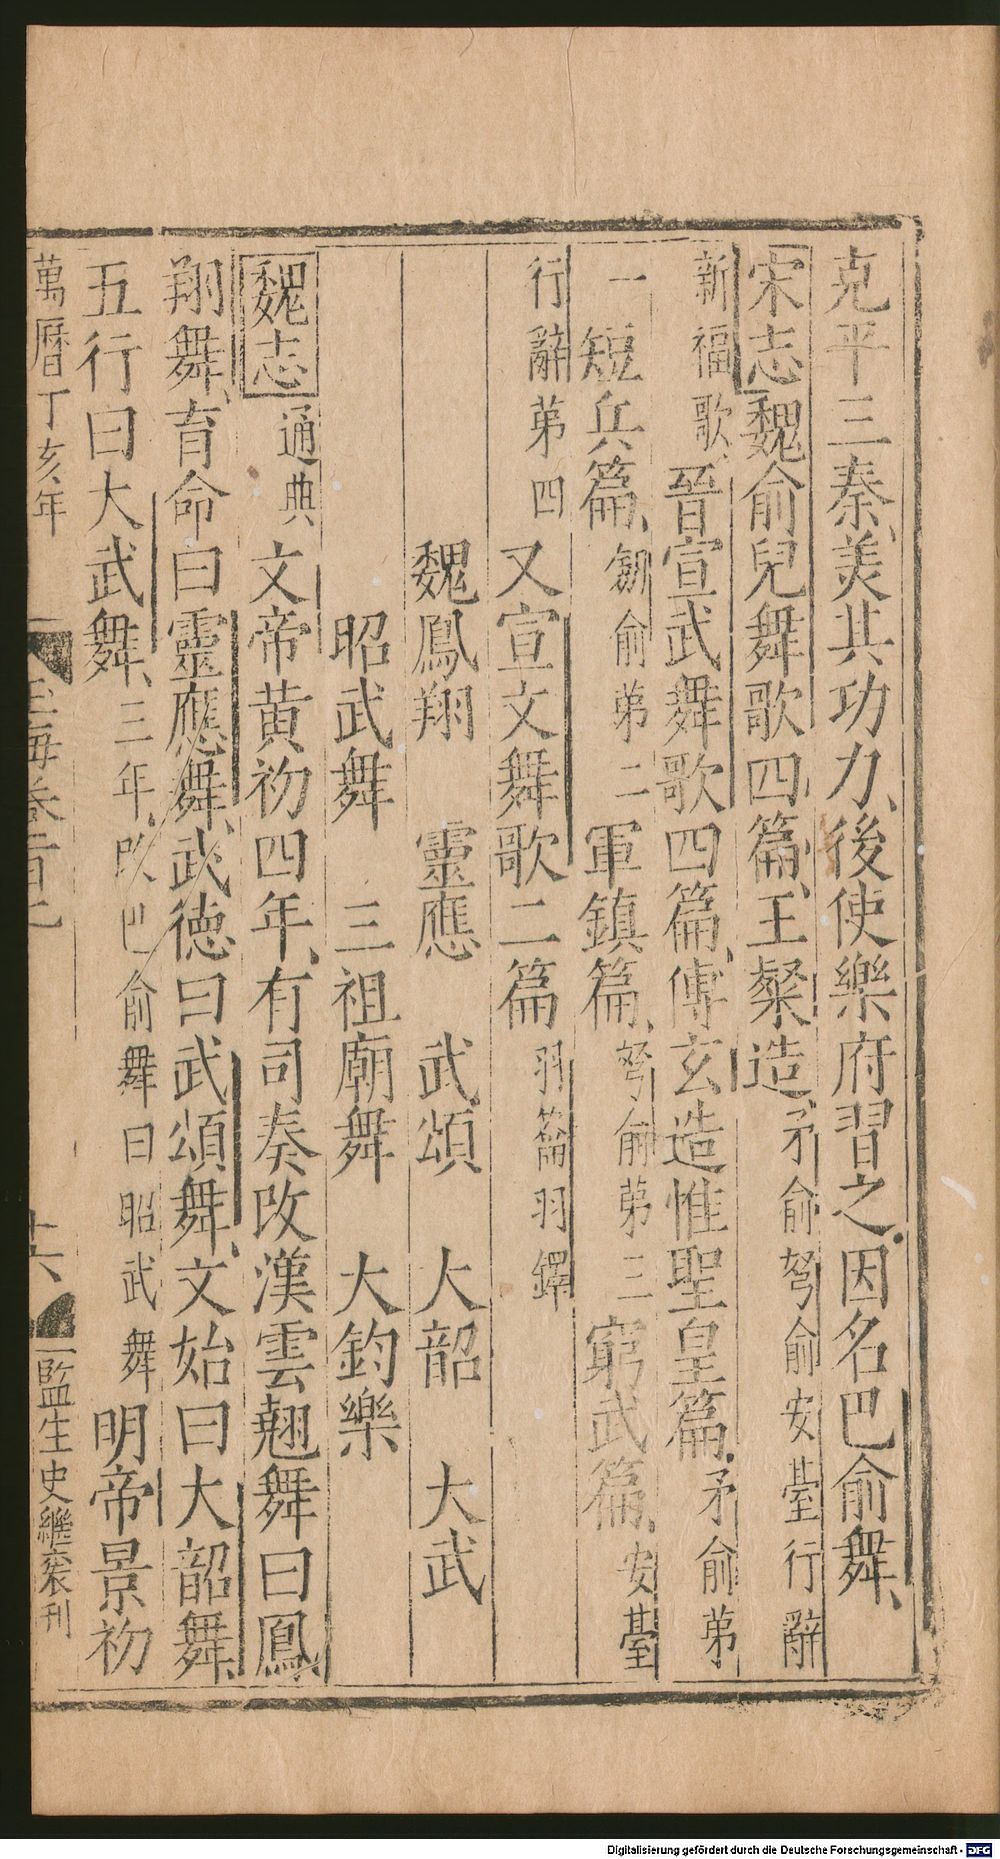 克平三秦美其功力後使樂府習之因名巴俞舞
宋志魏俞兒舞歌四篇王粲造矛俞弩俞安臺行辭
新福歌晉宣武舞歌四篇傅玄造惟聖皇篇矛俞苐
一短兵篇劒俞苐二軍鎮篇弩俞苐三窮武篇安臺
行辭苐四又宣文舞歌二篇羽籥羽鐸
魏鳳翔 靈應 武頌 大韶 大武
昭武舞 三祖廟舞 大鈞樂
魏志通典文帝黃初四年有司奏改漢雲翹舞曰鳳
翔舞育命曰靈應舞武德曰武頌舞文始曰大韶舞
五行曰大武舞三年改巴俞舞曰昭武舞明帝景初
萬曆丁亥年 玉海卷一百七 十六 監生史繼裘刊
Digitalisierung gefördert durch die Deutsche Forschungsgemeinschaft - DFG